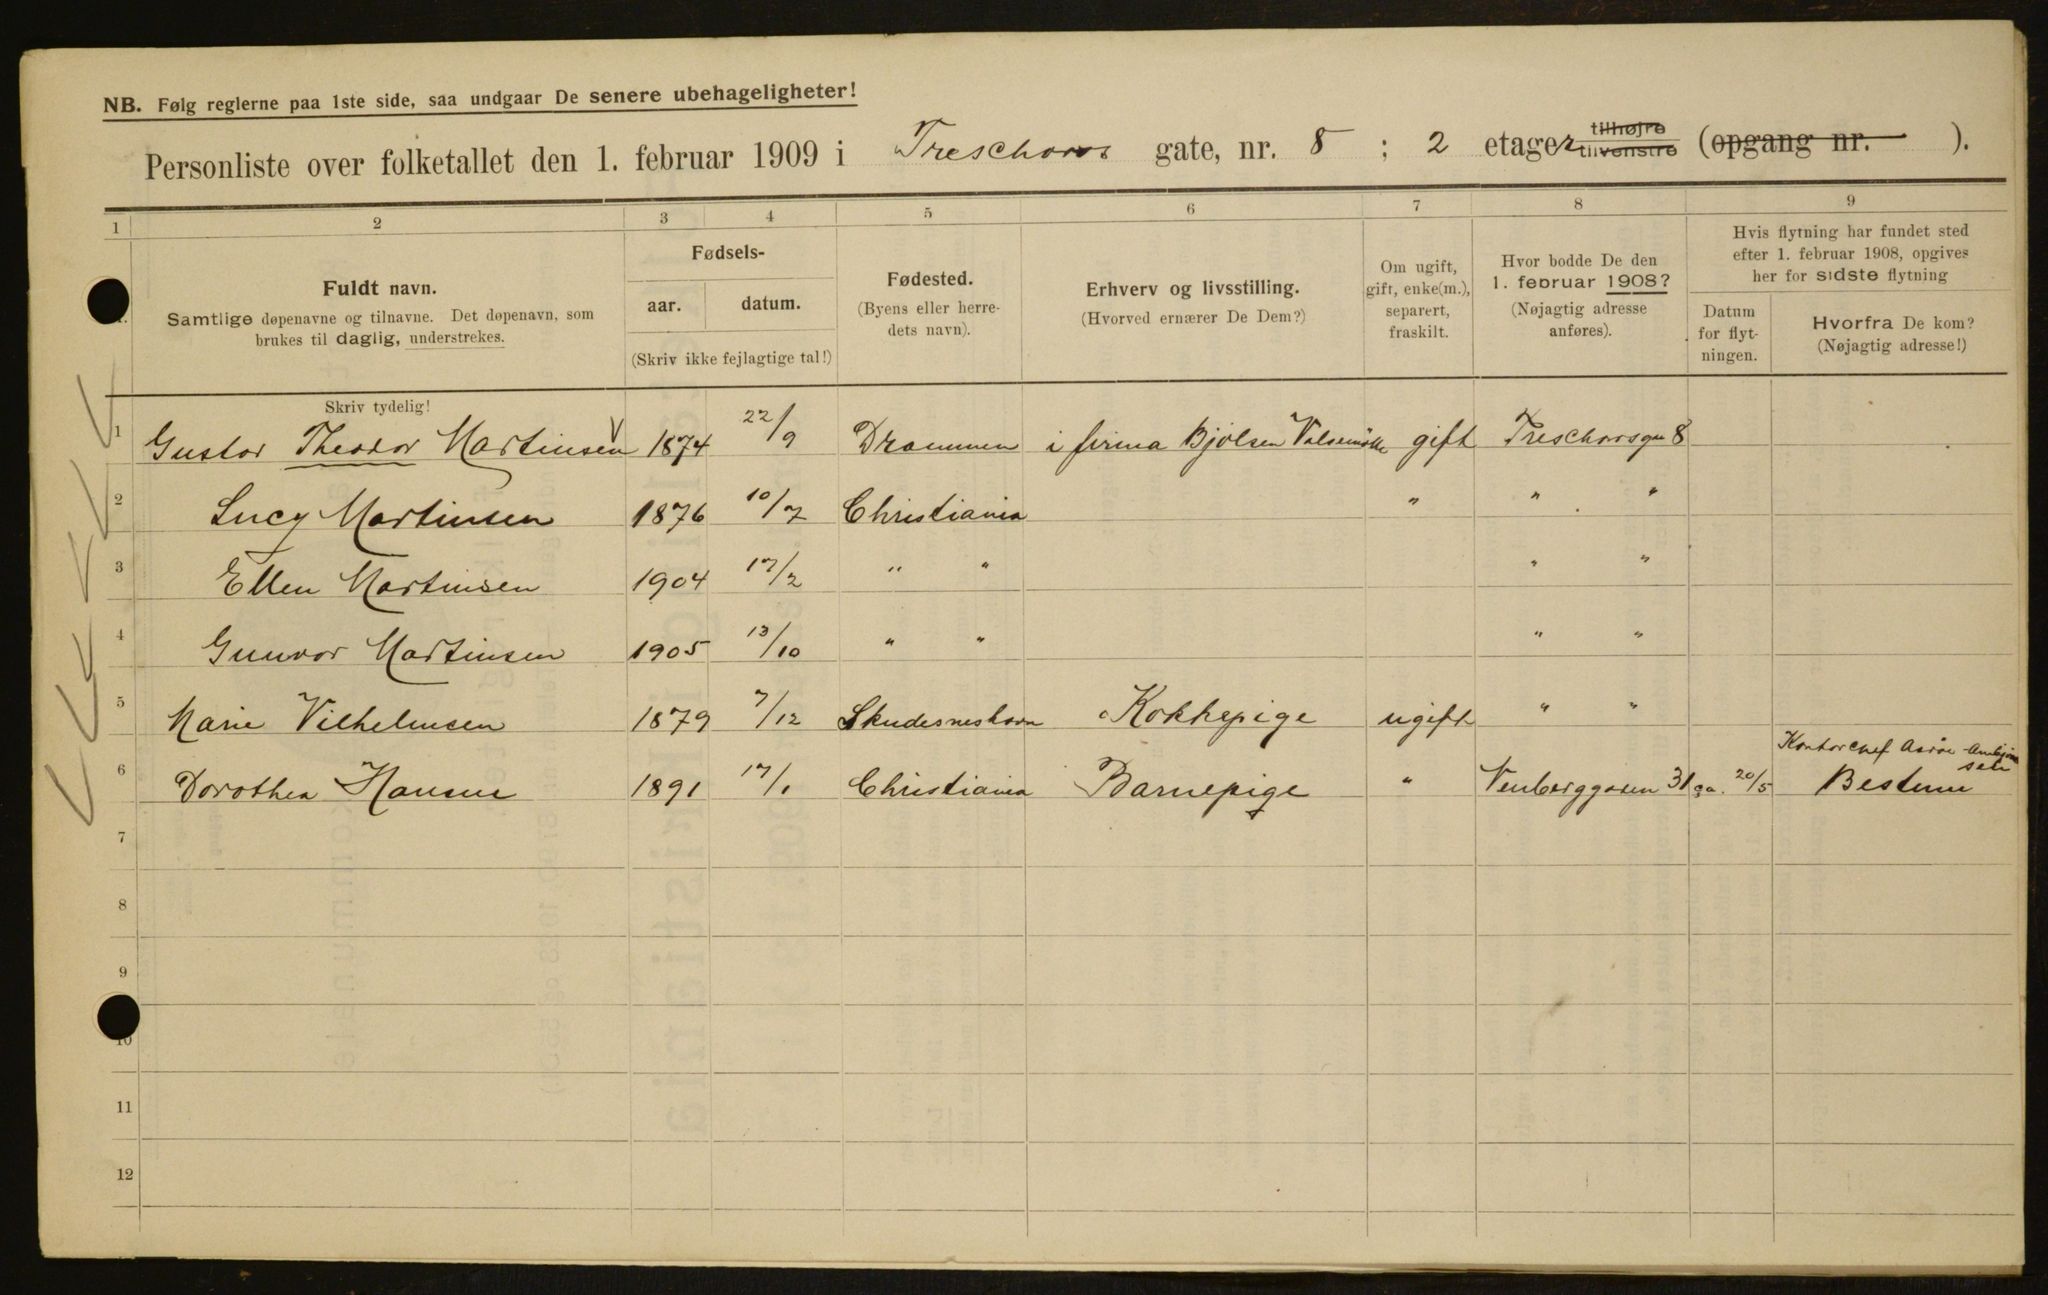 NB. Følg reglerne paa 1ste side, saa undgaar De senere ubehageligheter!
Personliste over folketallet den 1. februar 1909 i Treschows gate, nr. 8 ; 2 etager tilhøjre tilvenstre (opgang nr. ).
1 2 3 4 5 6 7 8 9
Fuldt navn.
Samtlige døpenavne og tilnavne. Det døpenavn, som
brukes til daglig, understrekes.
Fødsels-
aar. datum.
(Skriv ikke fejlagtige tal!)
Fødested.
(Byens eller herre-
dets navn).
Erhverv og livsstilling.
(Hvorved ernærer De Dem?)
Om ugift,
gift, enke(m.),
separert,
fraskilt.
Hvor bodde De den
1. februar 1908?
(Nøjagtig adresse
anføres).
Hvis flytning har fundet sted
efter 1. februar 1908, opgives
her for sidste flytning
Datum
for flyt-
ningen.
Hvorfra De kom?
(Nøjagtig adresse!)
Skriv tydelig!
1 Gustav Theodor Martinsen 1874 22/9 Drammen i firma Bjølsen Valsemølle gift Treschowsgt 8
2 Lucy Martinsen 1876 10/7 Christiania " " "
3 Ellen Martinsen 1904 17/2 " " " "
4 Gunvor Martinsen 1905 13/10 " " " "
5 Marie Vilhelmsen 1879 7/12 Skudesneshavn Kokkepige ugift " "
Kontorchef
6 Dorothea Hansen 1891 17/1 Christiania Barnepige " 31 20/5 Bestum
7
8
9
10
11
12